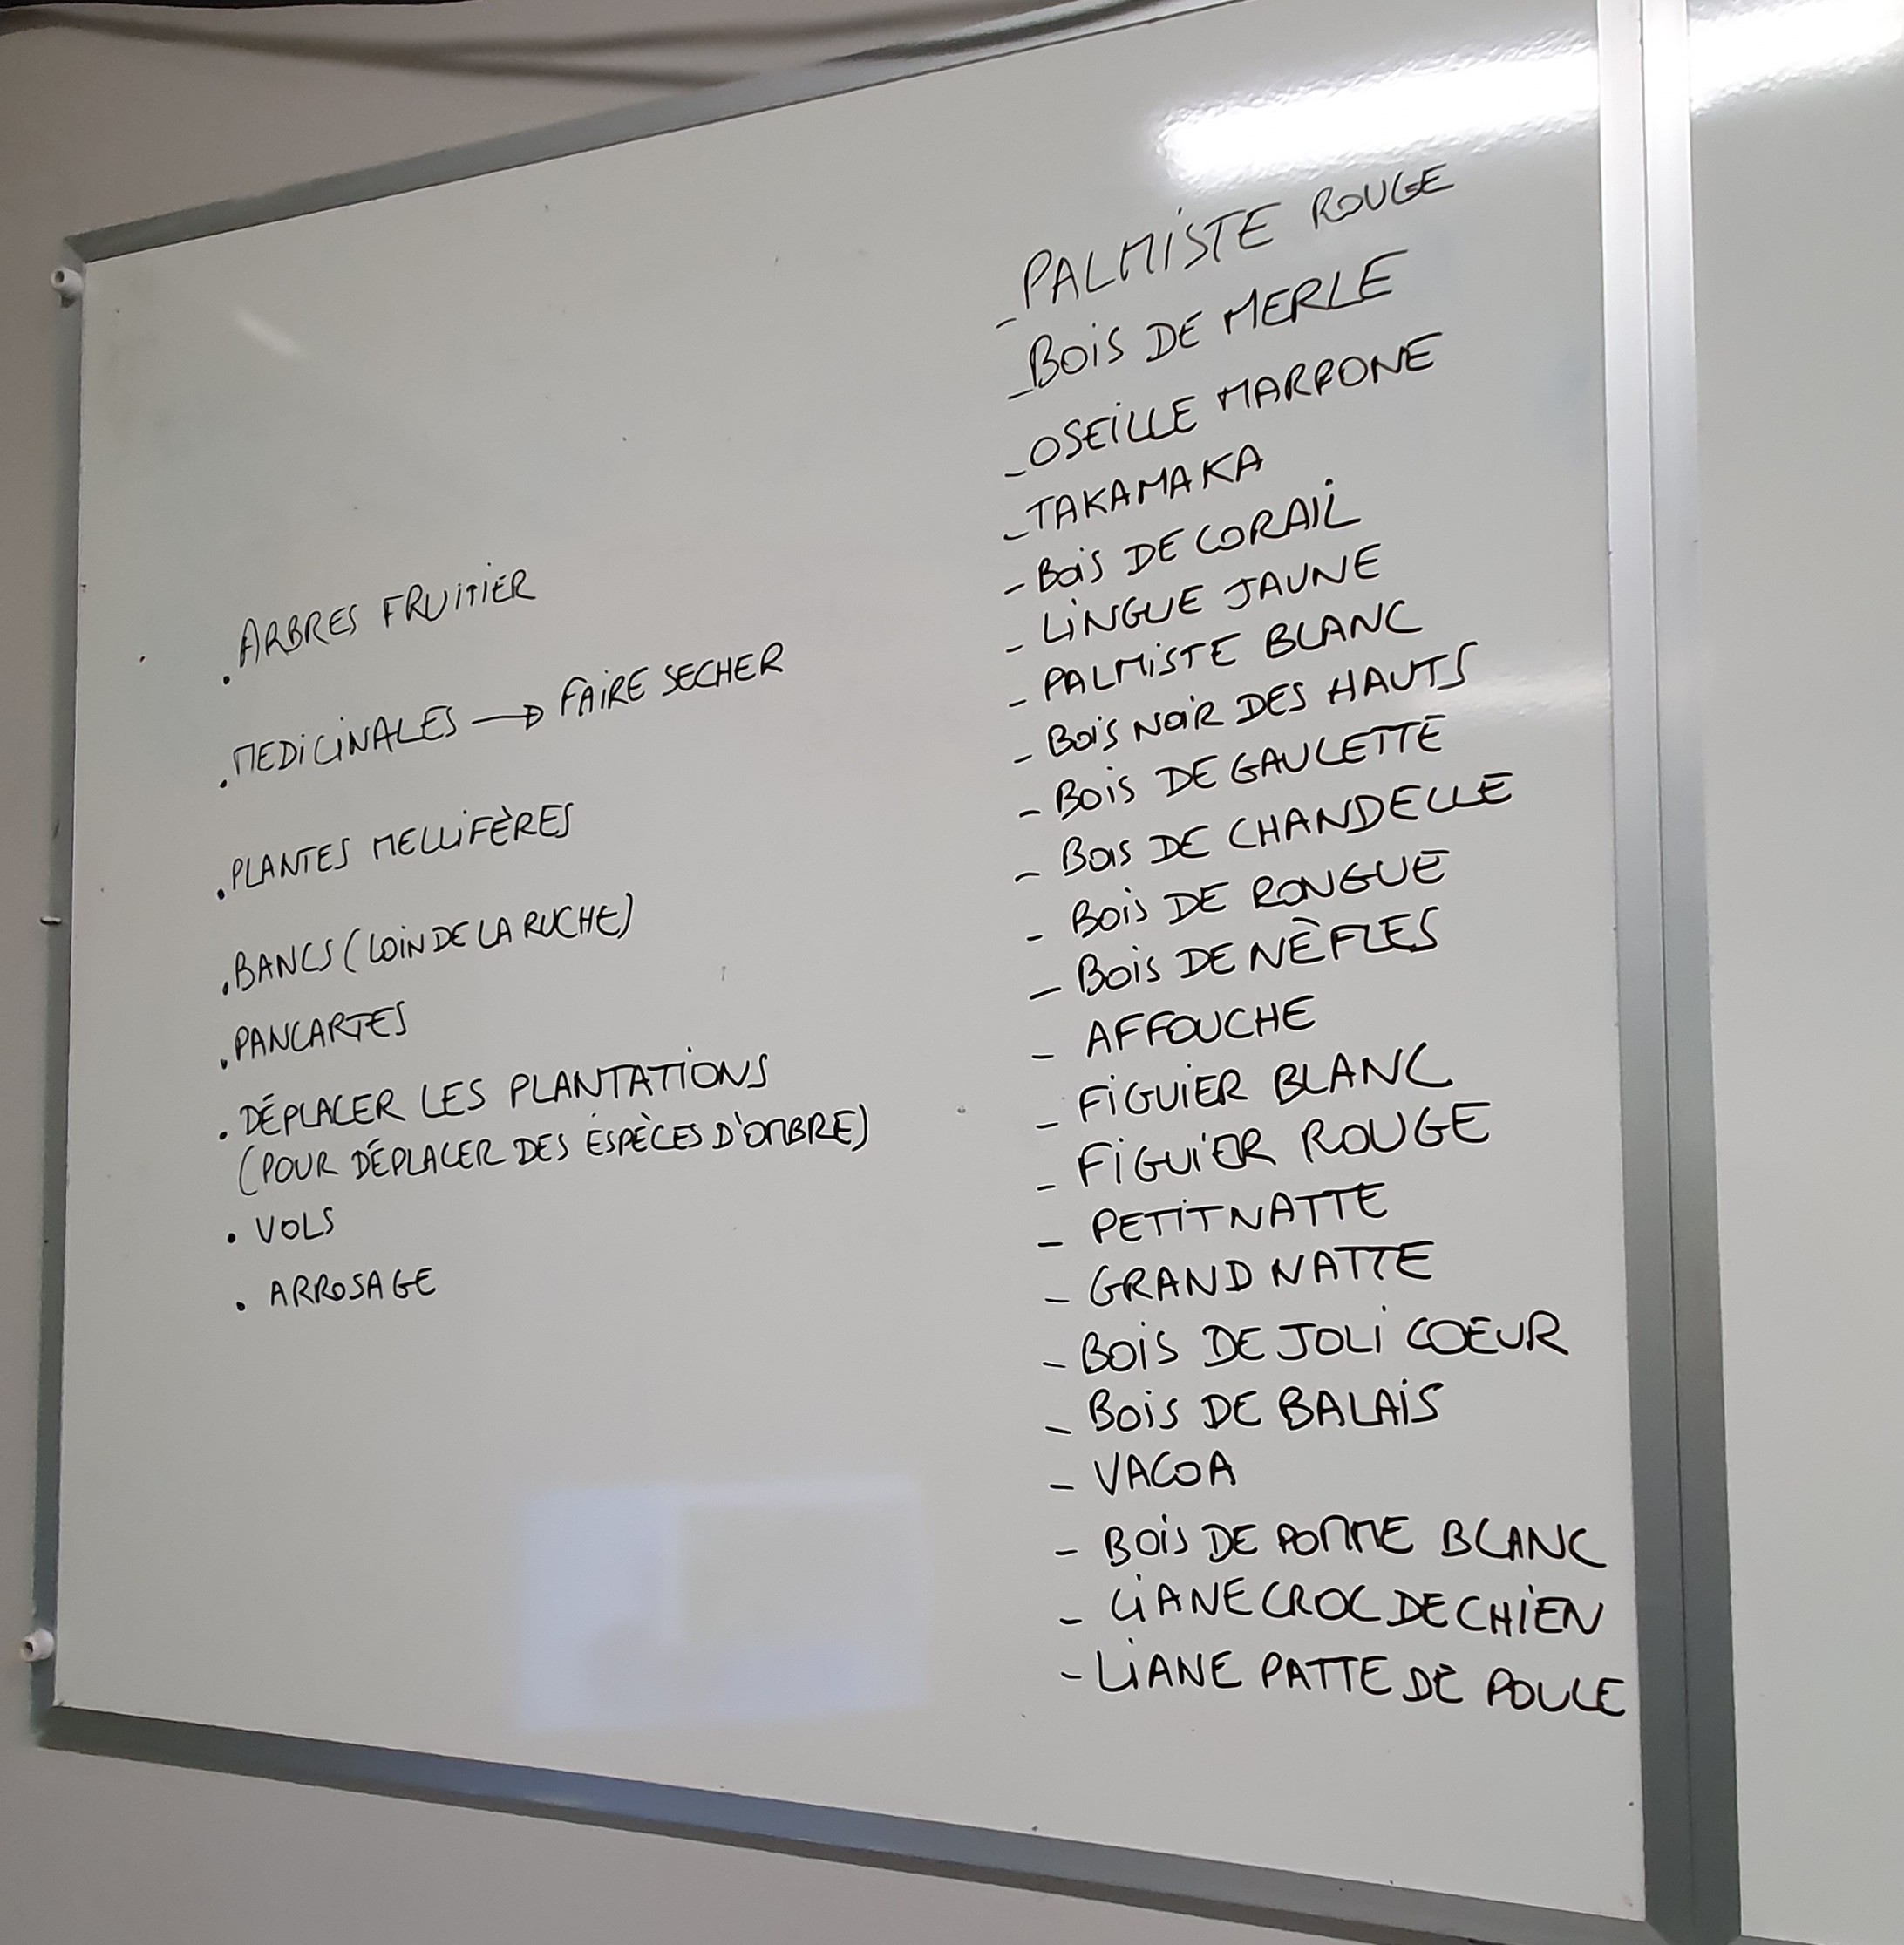 . ARBRES FRUITIER
. MEDICINALES → FAIRE SECHER
. PLANTES MELLIFÈRES
. BANCS (LOIN DE LA RUCHE)
. PANCARTES
. DÉPLACER LES PLANTATIONS
(POUR DÉPLACER DES ESPÈCES D'OMBRE)
. VOLS
. ARROSAGE
- PALMISTE ROUGE
- BOIS DE MERLE
- OSEILLE MARRONE
- TAKAMAKA
- BOIS DE CORAIL
- LINGUE JAUNE
- PALMISTE BLANC
- BOIS NOIR DES HAUTS
- BOIS DE GAULETTE
- BOIS DE CHANDELLE
- BOIS DE RONGUE
- BOIS DE NÈFLES
- AFFOUCHE
- FIGUIER BLANC
- FIGUIER ROUGE
- PETIT NATTE
- GRAND NATTE
- BOIS DE JOLI COEUR
- BOIS DE BALAIS
- VACOA
- BOIS DE POMME BLANC
- LIANE CROC DE CHIEN
- LIANE PATTE DE POULE